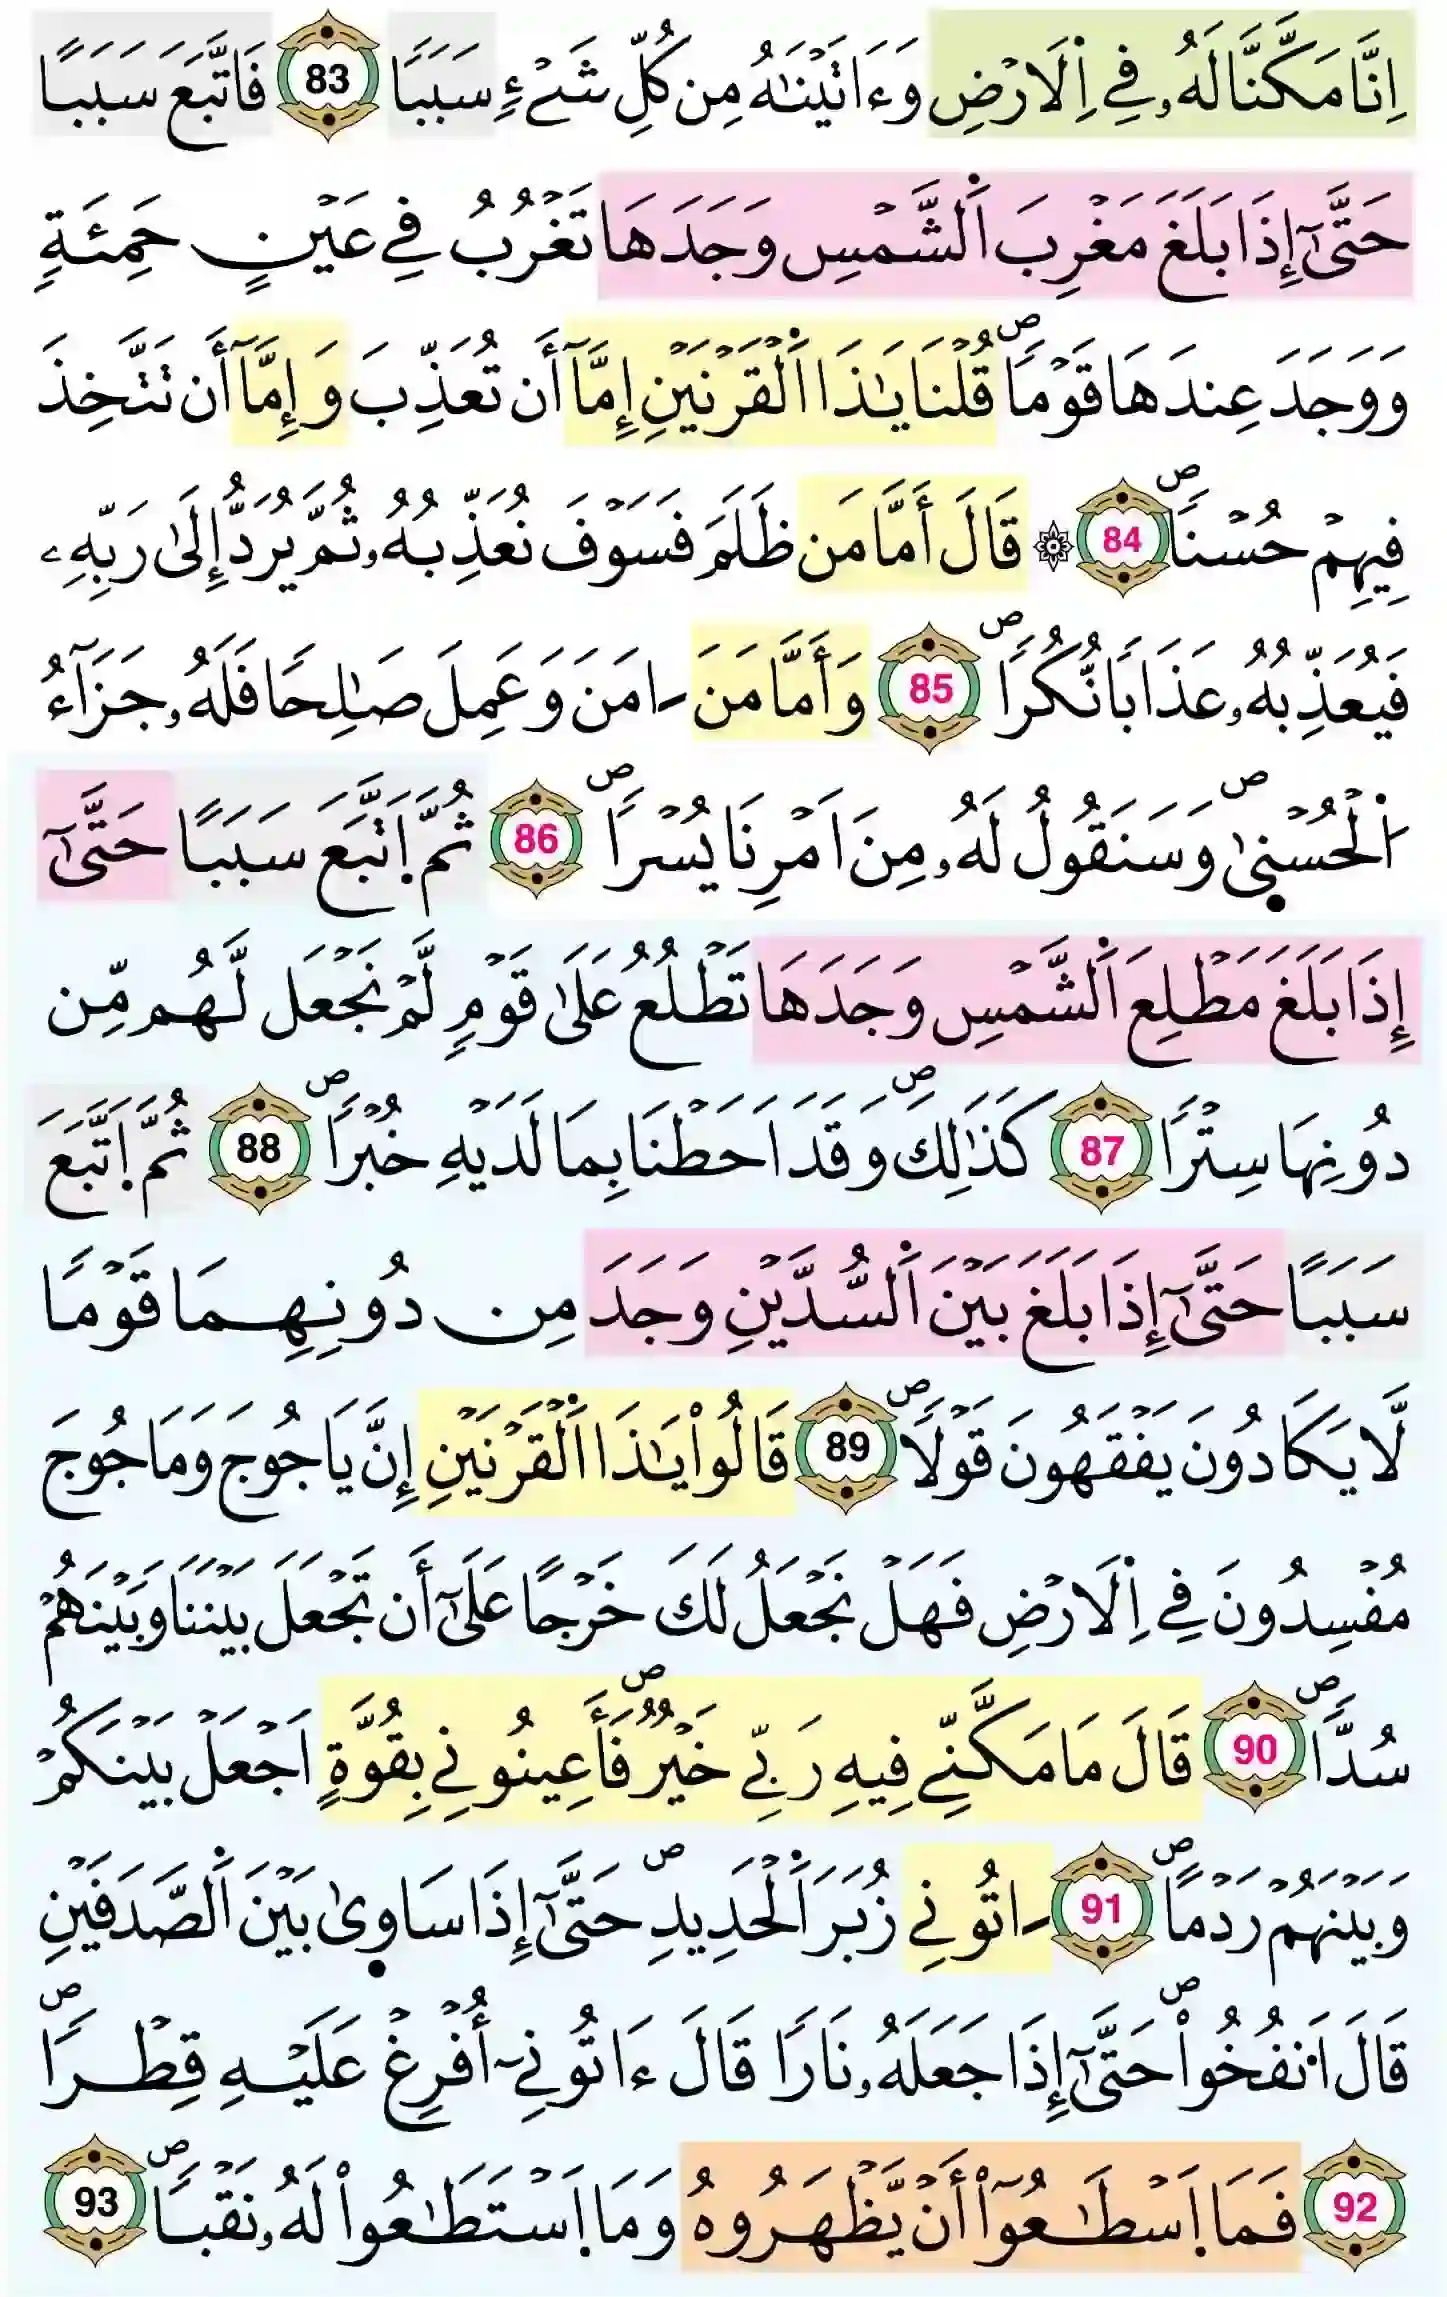 اِنَّا مَكَّنَّا لَهُۥ فِے اِ۬لَارْضِ وَءَاتَيْنَٰهُ مِن كُلِّ شَےْءٖ سَبَباٗ 83 فَاتَّبَعَ سَبَباً
حَتَّيٰٓ إِذَا بَلَغَ مَغْرِبَ اَ۬لشَّمْسِ وَجَدَهَا تَغْرُبُ فِے عَيْنٍ حَمِئَةٖ
وَوَجَدَ عِندَهَا قَوْماٗۖ قُلْنَا يَٰذَا اَ۬لْقَرْنَيْنِ إِمَّآ أَن تُعَذِّبَ وَإِمَّآ أَن تَتَّخِذَ
فِيهِمْ حُسْناٗۖ 84 ۞ قَالَ أَمَّا مَن ظَلَمَ فَسَوْفَ نُعَذِّبُهُۥ ثُمَّ يُرَدُّ إِلَىٰ رَبِّهِۦ
فَيُعَذِّبُهُۥ عَذَاباٗ نُّكُراٗۖ 85 وَأَمَّا مَنَ اٰمَنَ وَعَمِلَ صَٰلِحاٗ فَلَهُۥ جَزَآءُ
اُ۬لْحُسْنۭيٰۖ وَسَنَقُولُ لَهُۥ مِنَ اَمْرِنَا يُسْراٗۖ 86 ثُمَّ اَ۪تَّبَعَ سَبَباً حَتَّيٰٓ
إِذَا بَلَغَ مَطْلِعَ اَ۬لشَّمْسِ وَجَدَهَا تَطْلُعُ عَلَىٰ قَوْمٖ لَّمْ نَجْعَل لَّهُم مِّن
دُونِهَا سِتْراٗ 87 كَذَٰلِكَۖ وَقَدَ اَحَطْنَا بِمَا لَدَيْهِ خُبْراٗۖ 88 ثُمَّ اَ۪تَّبَعَ
سَبَباً حَتَّيٰٓ إِذَا بَلَغَ بَيْنَ اَ۬لسُّدَّيْنِ وَجَدَ مِن دُونِهِمَا قَوْماٗ
لَّا يَكَادُونَ يَفْقَهُونَ قَوْلاٗۖ 89 قَالُواْ يَٰذَا اَ۬لْقَرْنَيْنِ إِنَّ يَاجُوجَ وَمَاجُوجَ
مُفْسِدُونَ فِے اِ۬لَارْضِ فَهَلْ نَجْعَلُ لَكَ خَرْجاً عَلَىٰٓ أَن تَجْعَلَ بَيْنَنَا وَبَيْنَهُمْ
سُدّاٗۖ 90 قَالَ مَا مَكَّنِّے فِيهِ رَبِّے خَيْرٞۖ فَأَعِينُونِے بِقُوَّةٍ اَجْعَلْ بَيْنَكُمْ
وَبَيْنَهُمْ رَدْماًۖ 91 اٰتُونِے زُبَرَ اَ۬لْحَدِيدِۖ حَتَّيٰٓ إِذَا سَاوۭيٰ بَيْنَ اَ۬لصَّدَفَيْنِ
قَالَ اَ۟نفُخُواْۖ حَتَّيٰٓ إِذَا جَعَلَهُۥ نَاراٗ قَالَ ءَاتُونِےٓ أُفْرِغْ عَلَيْهِ قِطْراٗۖ
92 فَمَا اَ۪سْطَٰعُوٓاْ أَنْ يَّظْهَرُوهُ وَمَا اَ۪سْتَطَٰعُواْ لَهُۥ نَقْباٗۖ 93